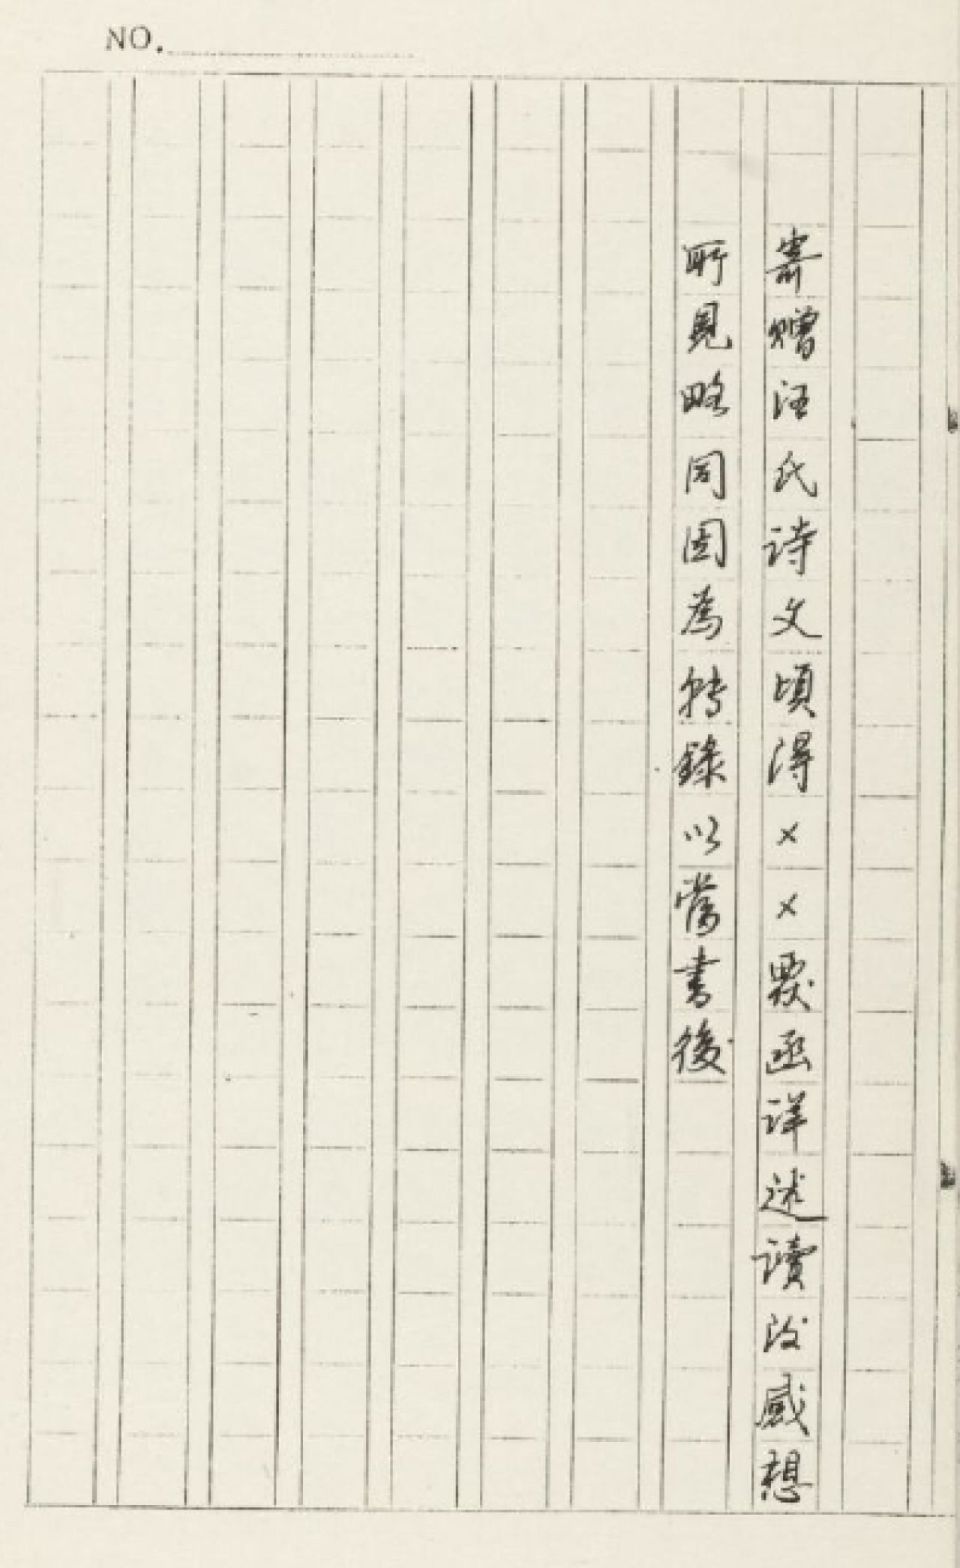 NO.
寄贈汪氏詩文頃得××覆函詳述讀後感想
所見略同因爲轉錄以當書後